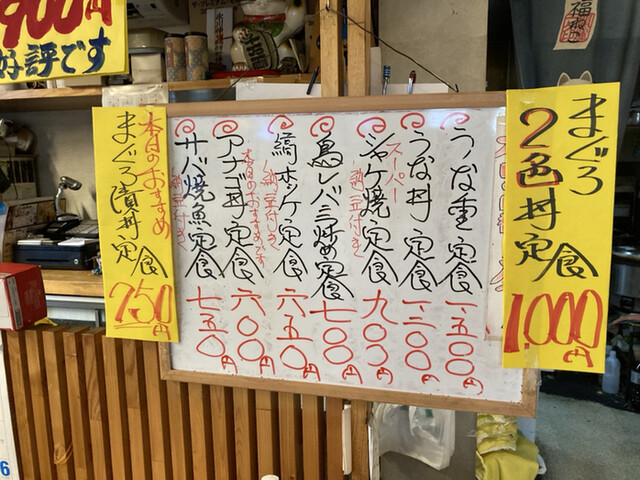 900円
好評です
まぐろ
2色丼定食
1,000円
うな重定食 一、五〇〇円
うな丼定食 一、三〇〇円
スーパー
シャケ焼定食 九〇〇円
納豆付き
鳥レバー炒め定食 七〇〇円
縞ホッケ定食 六五〇円
納豆付き
本日のおすすめです
アナゴ丼定食 六〇〇円
サバ焼魚定食 七五〇円
納豆付き
本日のおすすめ
まぐろ漬丼定食
750円
福